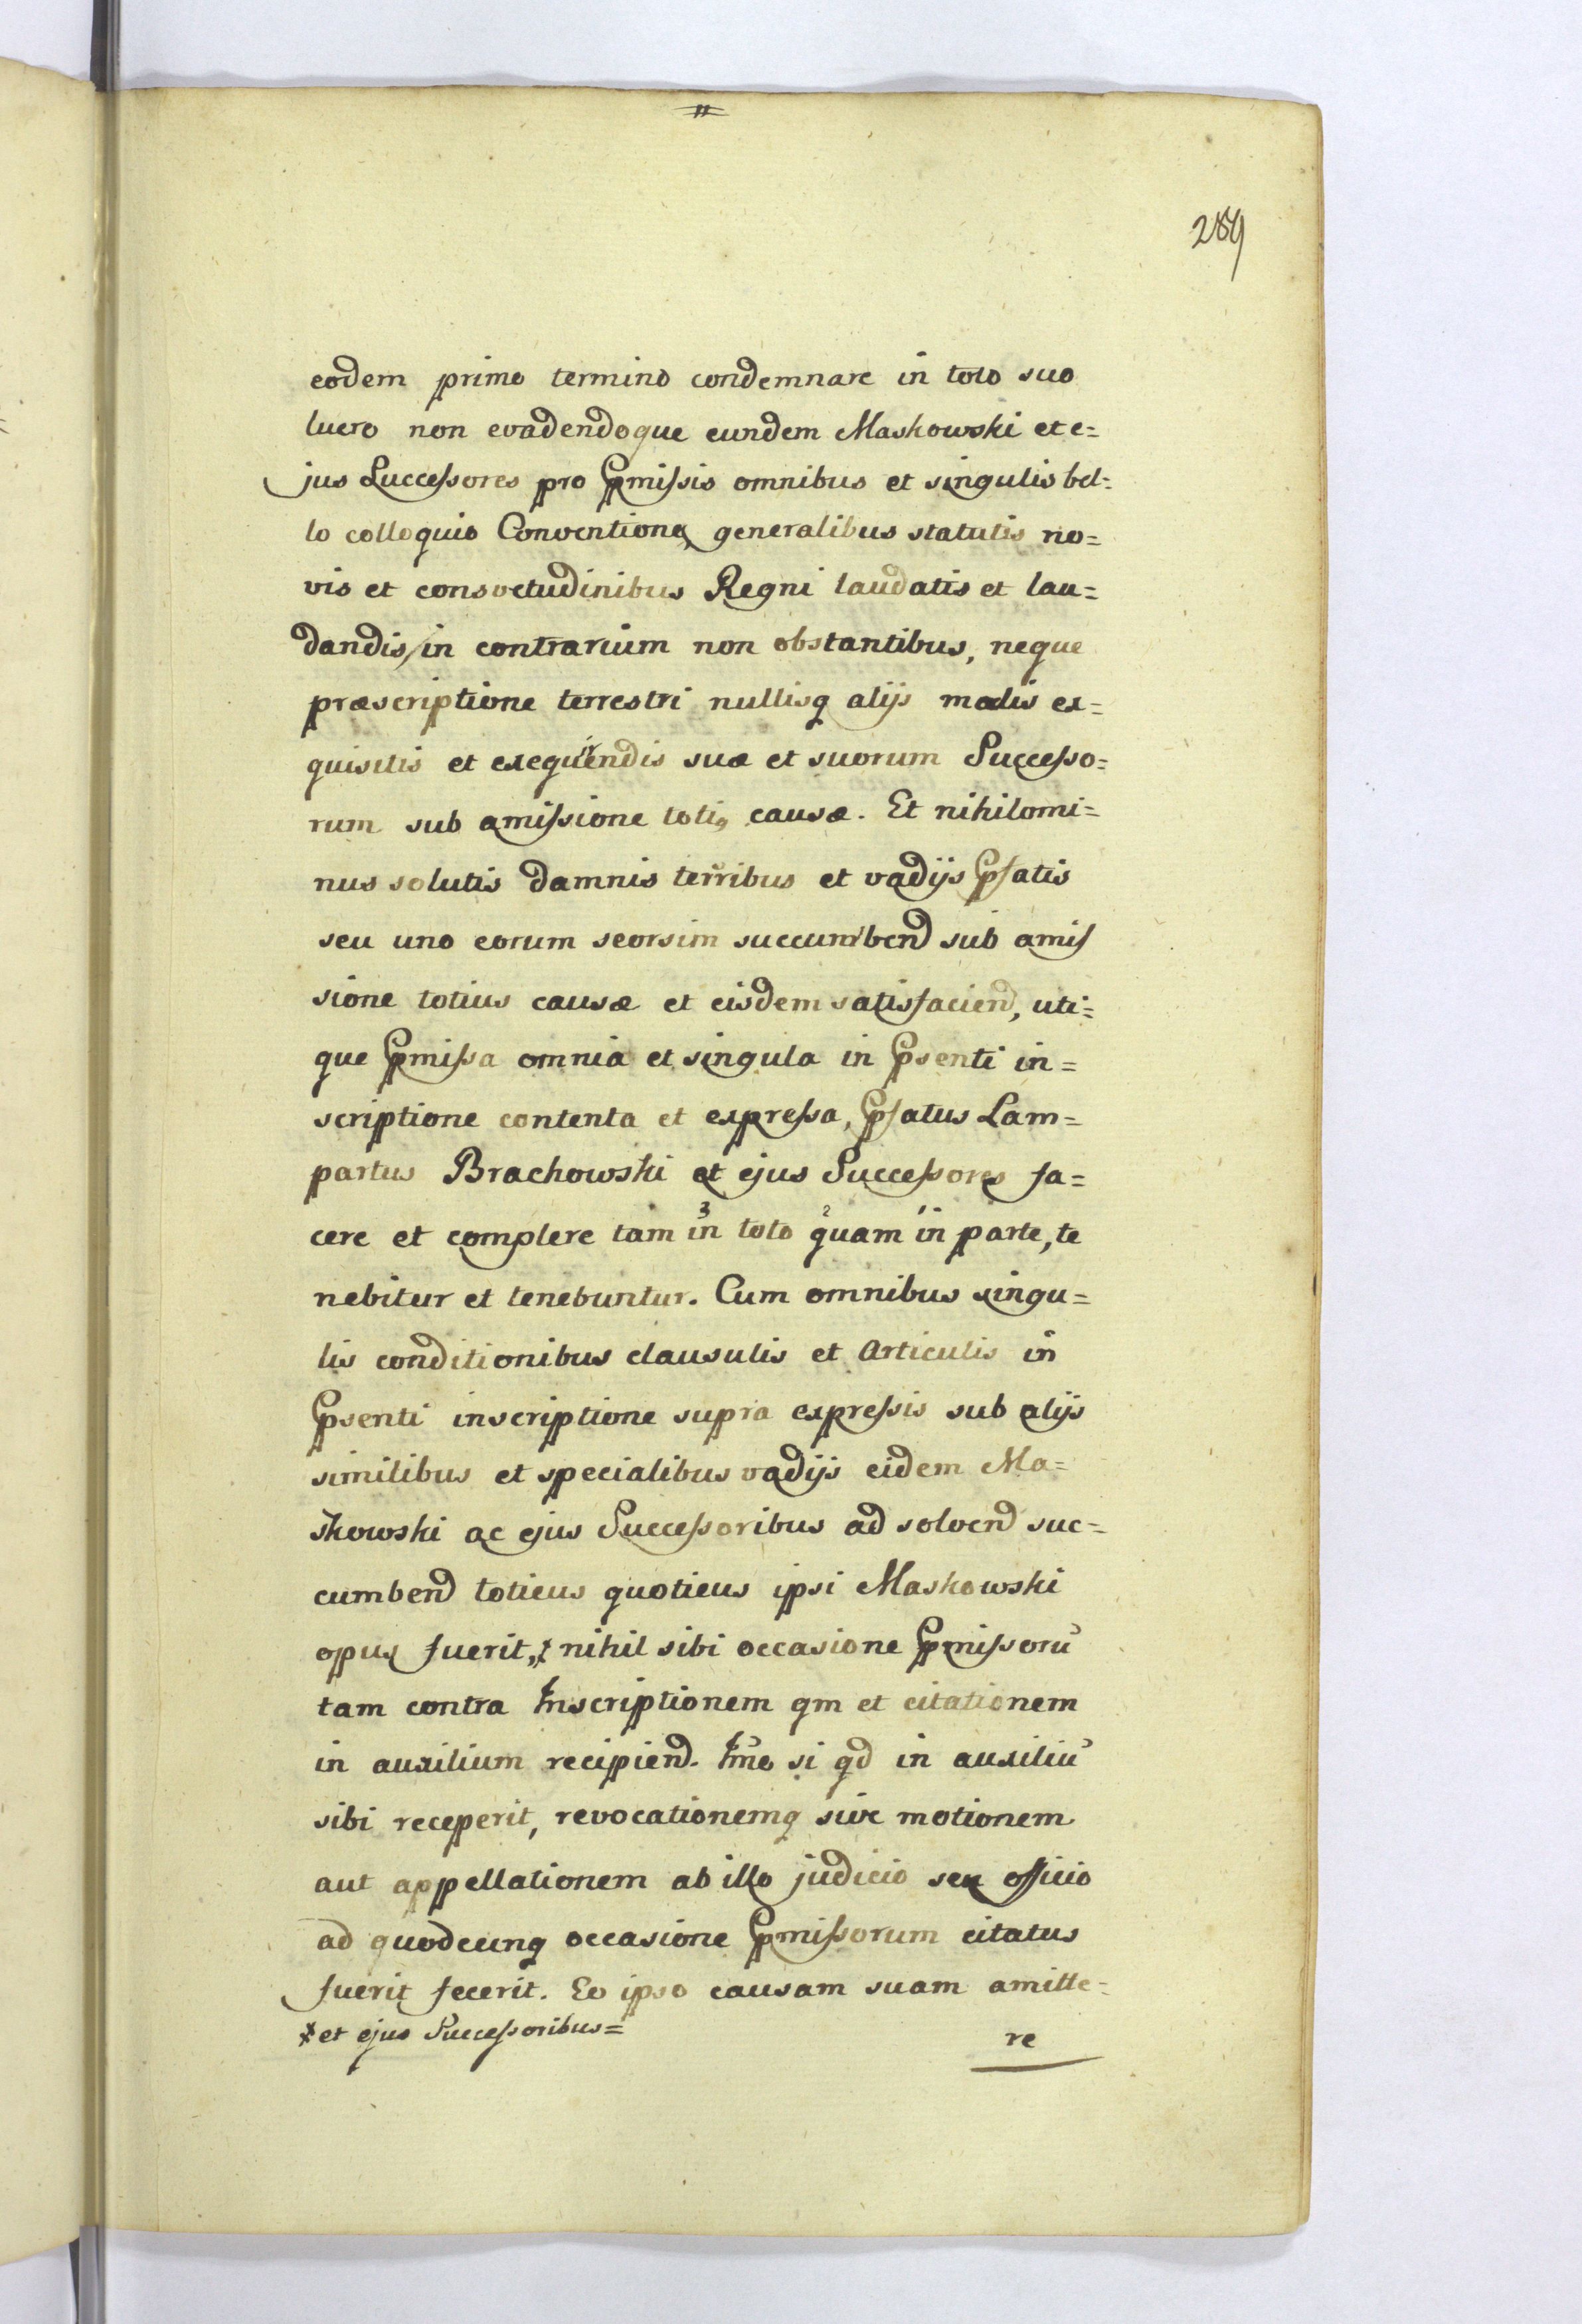 289
eodem primo termino condemnare in toto suo
lucro non evadendoque eundem Maskowski et e=
jus Successores pro Pmissis omnibus et singulis bel=
lo colloquio Conventione generalibus statutis no=
vis et consvetudinibus Regni laudatis et lau=
dandis, in contrarium non obstantibus, neque
præscriptione terrestri nullisq alijs modis ex=
quisitis et exequirendis suæ et suorum Successo=
rum sub amissione totiq causæ. Et nihilomi=
nus solutis damnis terribus et vadijs Pfatis
seu uno eorum seorsim succumbend sub amis
sione totius causæ et eisdem satisfaciend, uti=
que Pmissa omnia et singula in Psenti in=
scriptione contenta et expressa, Pfatus Lam=
partus Brachowski et ejus Successores fa=
cere et complere tam in toto quam in parte, te
nebitur et tenebuntur. Cum omnibus singu=
lis conditionibus clausulis et Articulis in
Psenti inscriptione supra expressis sub alijs
similibus et specialibus vadijs eidem Ma=
skowski ac ejus Successoribus ad solvend suc=
cumbend toticus quoticus ipsi Maskowski
opus fuerit, * nihil sibi occasione Pmissorũ
tam contra Inscriptionem qm et citationem
in auxilium recipiend. Imo si qd in auxiliũ
sibi receperit, revocationemq sive motionem
aut appellationem ab illo judicio seu officio
ad quodcunq occasione Pmissorum citatus
fuerit fecerit. Eo ipso causam suam amitte=
* et ejus Successoribus=
re